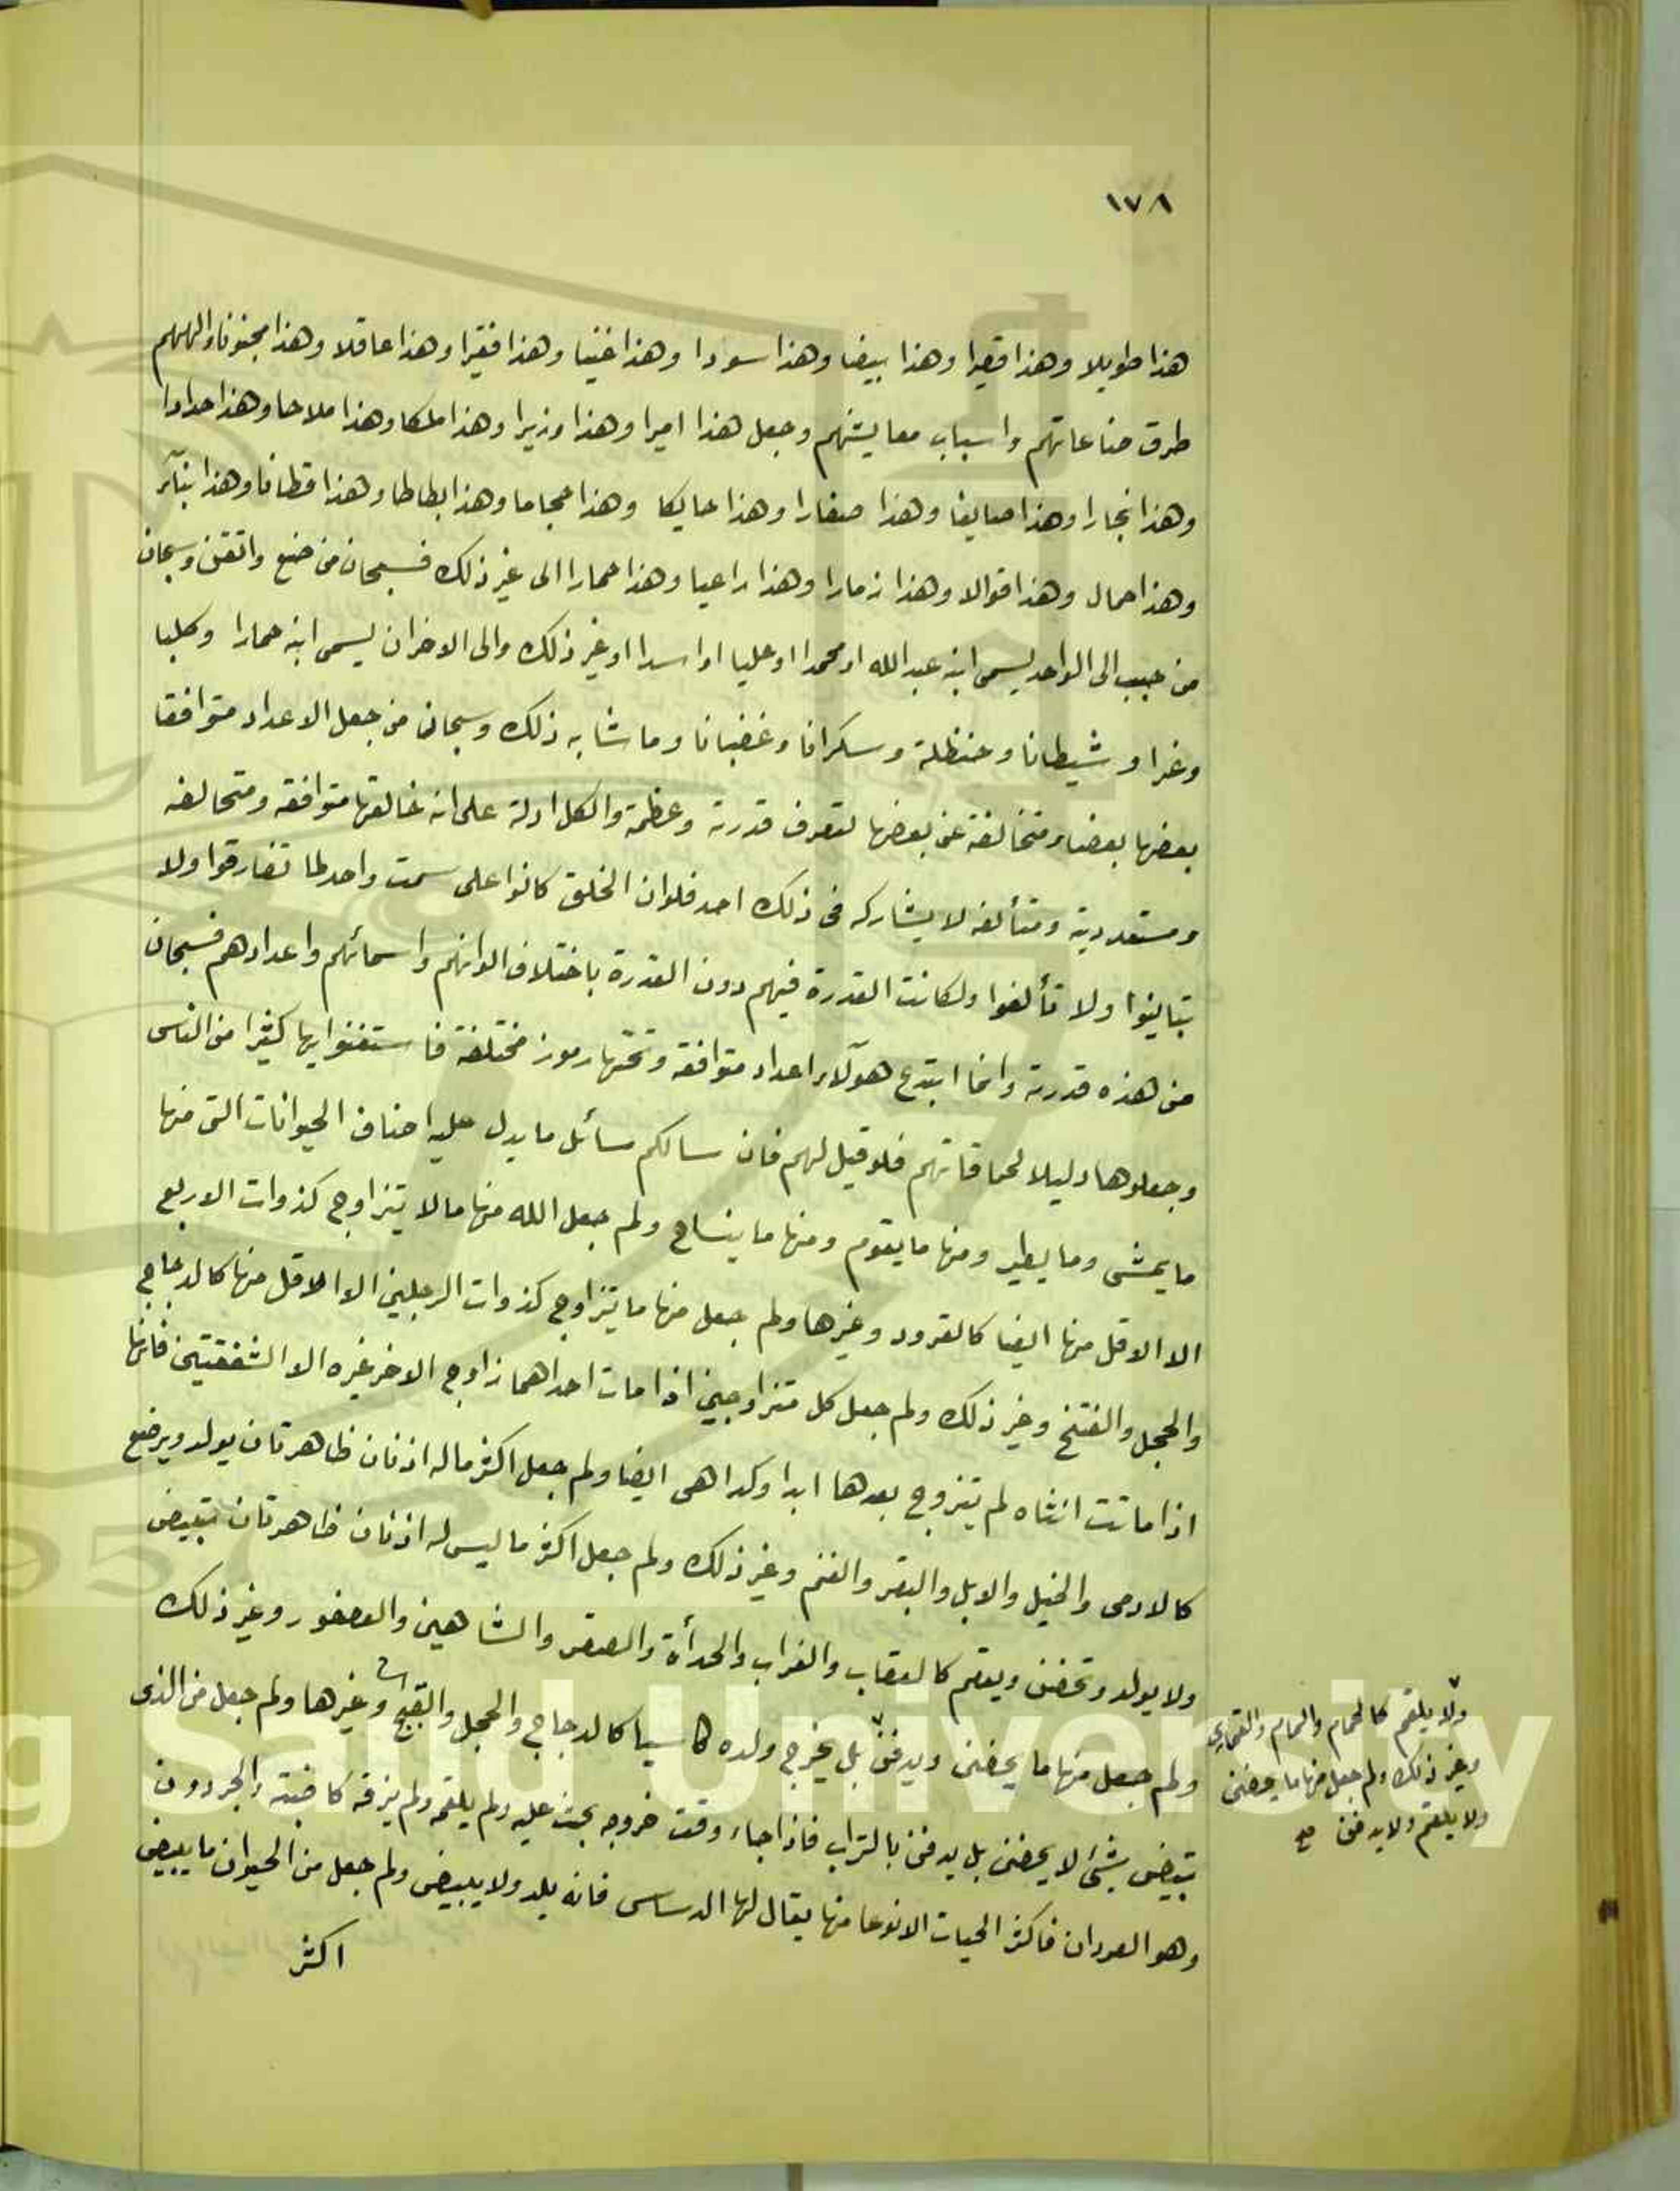 ١٧٨
هذا طويلا وهذا قصيرا وهذا بيضا وهذا سودا وهذا غنيا وهذا فقيرا وهذا عاقلا وهذا مجنونا والهمهم
طرق صناعاتهم واسباب معايشهم وجعل هذا اميرا وهذا وزيرا وهذا ملكا وهذا ملاحا وهذا حدادا
وهذا نجارا وهذا صايغا وهذا صفارا وهذا حايكا وهذا حجاما وهذا بطاطا وهذا قطانا وهذا بنآء
وهذا حمال وهذا قوالا وهذا زمارا وهذا راعيا وهذا حمارا الى غير ذلك فسبحان من صنع واتقن وسبحان
من حبب الى الواحد يسمى ابنه عبد الله او محمدا او عليا او اسدا او غير ذلك والى الاخر ان يسمى ابنه حمارا وكلبا
وغرا وشيطانا وحنظلة وسكرانا وغضبانا وما شابه ذلك وسبحان من جعل الاعداد متوافقا
بعضها بعضا ومتخالفة عن بعضها لتعرف قدرته وعظمة والكل ادلة على انه خالقها متوافقه ومتخالفه
ومستعددية ومتألفه لا يشاركه فى ذلك احد فلو ان الخلق كانوا على سمت واحد لما تفارقوا ولا
تباينوا ولا تألفوا ولكانت القدرة فيهم دون القدرة باختلاف الوانهم واسمائهم واعدادهم فسبحان
من هذه قدرته وانما ابتدع هوآلاء اعداد متوافقه وتحتها رموز مختلفة فاستغنوا بها كثيرا من الناس
وجعلوها دليلا لحماقاتهم فلو قيل لهم فان سالكم سائل ما يدل عليه اصناف الحيوانات التى منها
ما يمشى وما يطير ومنها ما يقوم ومنها ما ينساح ولم جعل الله منها ما لا يتزاوج كذوات الاربع
الا الاقل منها ايضا كالقرود وغيرها ولم جعل منها ما تتزاوج كذوات الرجلين الا الاقل منها كالدجاج
والحجل والفتخ وغير ذلك ولم جعل كل متزاوجين اذا مات احداهما زاوج الاخر غيره الا الشفقتين فانها
اذا ماتت انثاه لم يتزوج بعدها ابدا وكدا هى ايضا ولم جعل اكثر ما له اذنان ظاهرتان يولد ويرضع
كالادمى والخيل والابل والبقر والغنم وغير ذلك ولم جعل اكثر ما ليس له اذنان ظاهرتان تبيض
ولا يولد وتحضن ويعقم كالعقاب والغراب والحدأة والصقر والشاهين والعصفور وغير ذلك
ولم جعل منها ما يحضن ويدفن بل يخرج ولده كاسيا كالدجاج والحجل والقبج وغيرها ولم جعل من الذى
تبيض بشئ لا يحضن بل يدفن بالتراب فاذا جاء وقت خروجه بحث عليه ولم يلقمه ولم يزقه كاضبة والجردون
وهو العوردان فاكثر الحيات الا نوعا منها يقال لها الدساس فانه يلد ولا يبيض ولم جعل من الحيوان ما يبيض
اكثر
ولا يلقم كالحمام واليمام والقمارى
وغير ذلك ولم جعل منها ما يحضن
ولا يلقم ولا يدفن صح
g Saud University